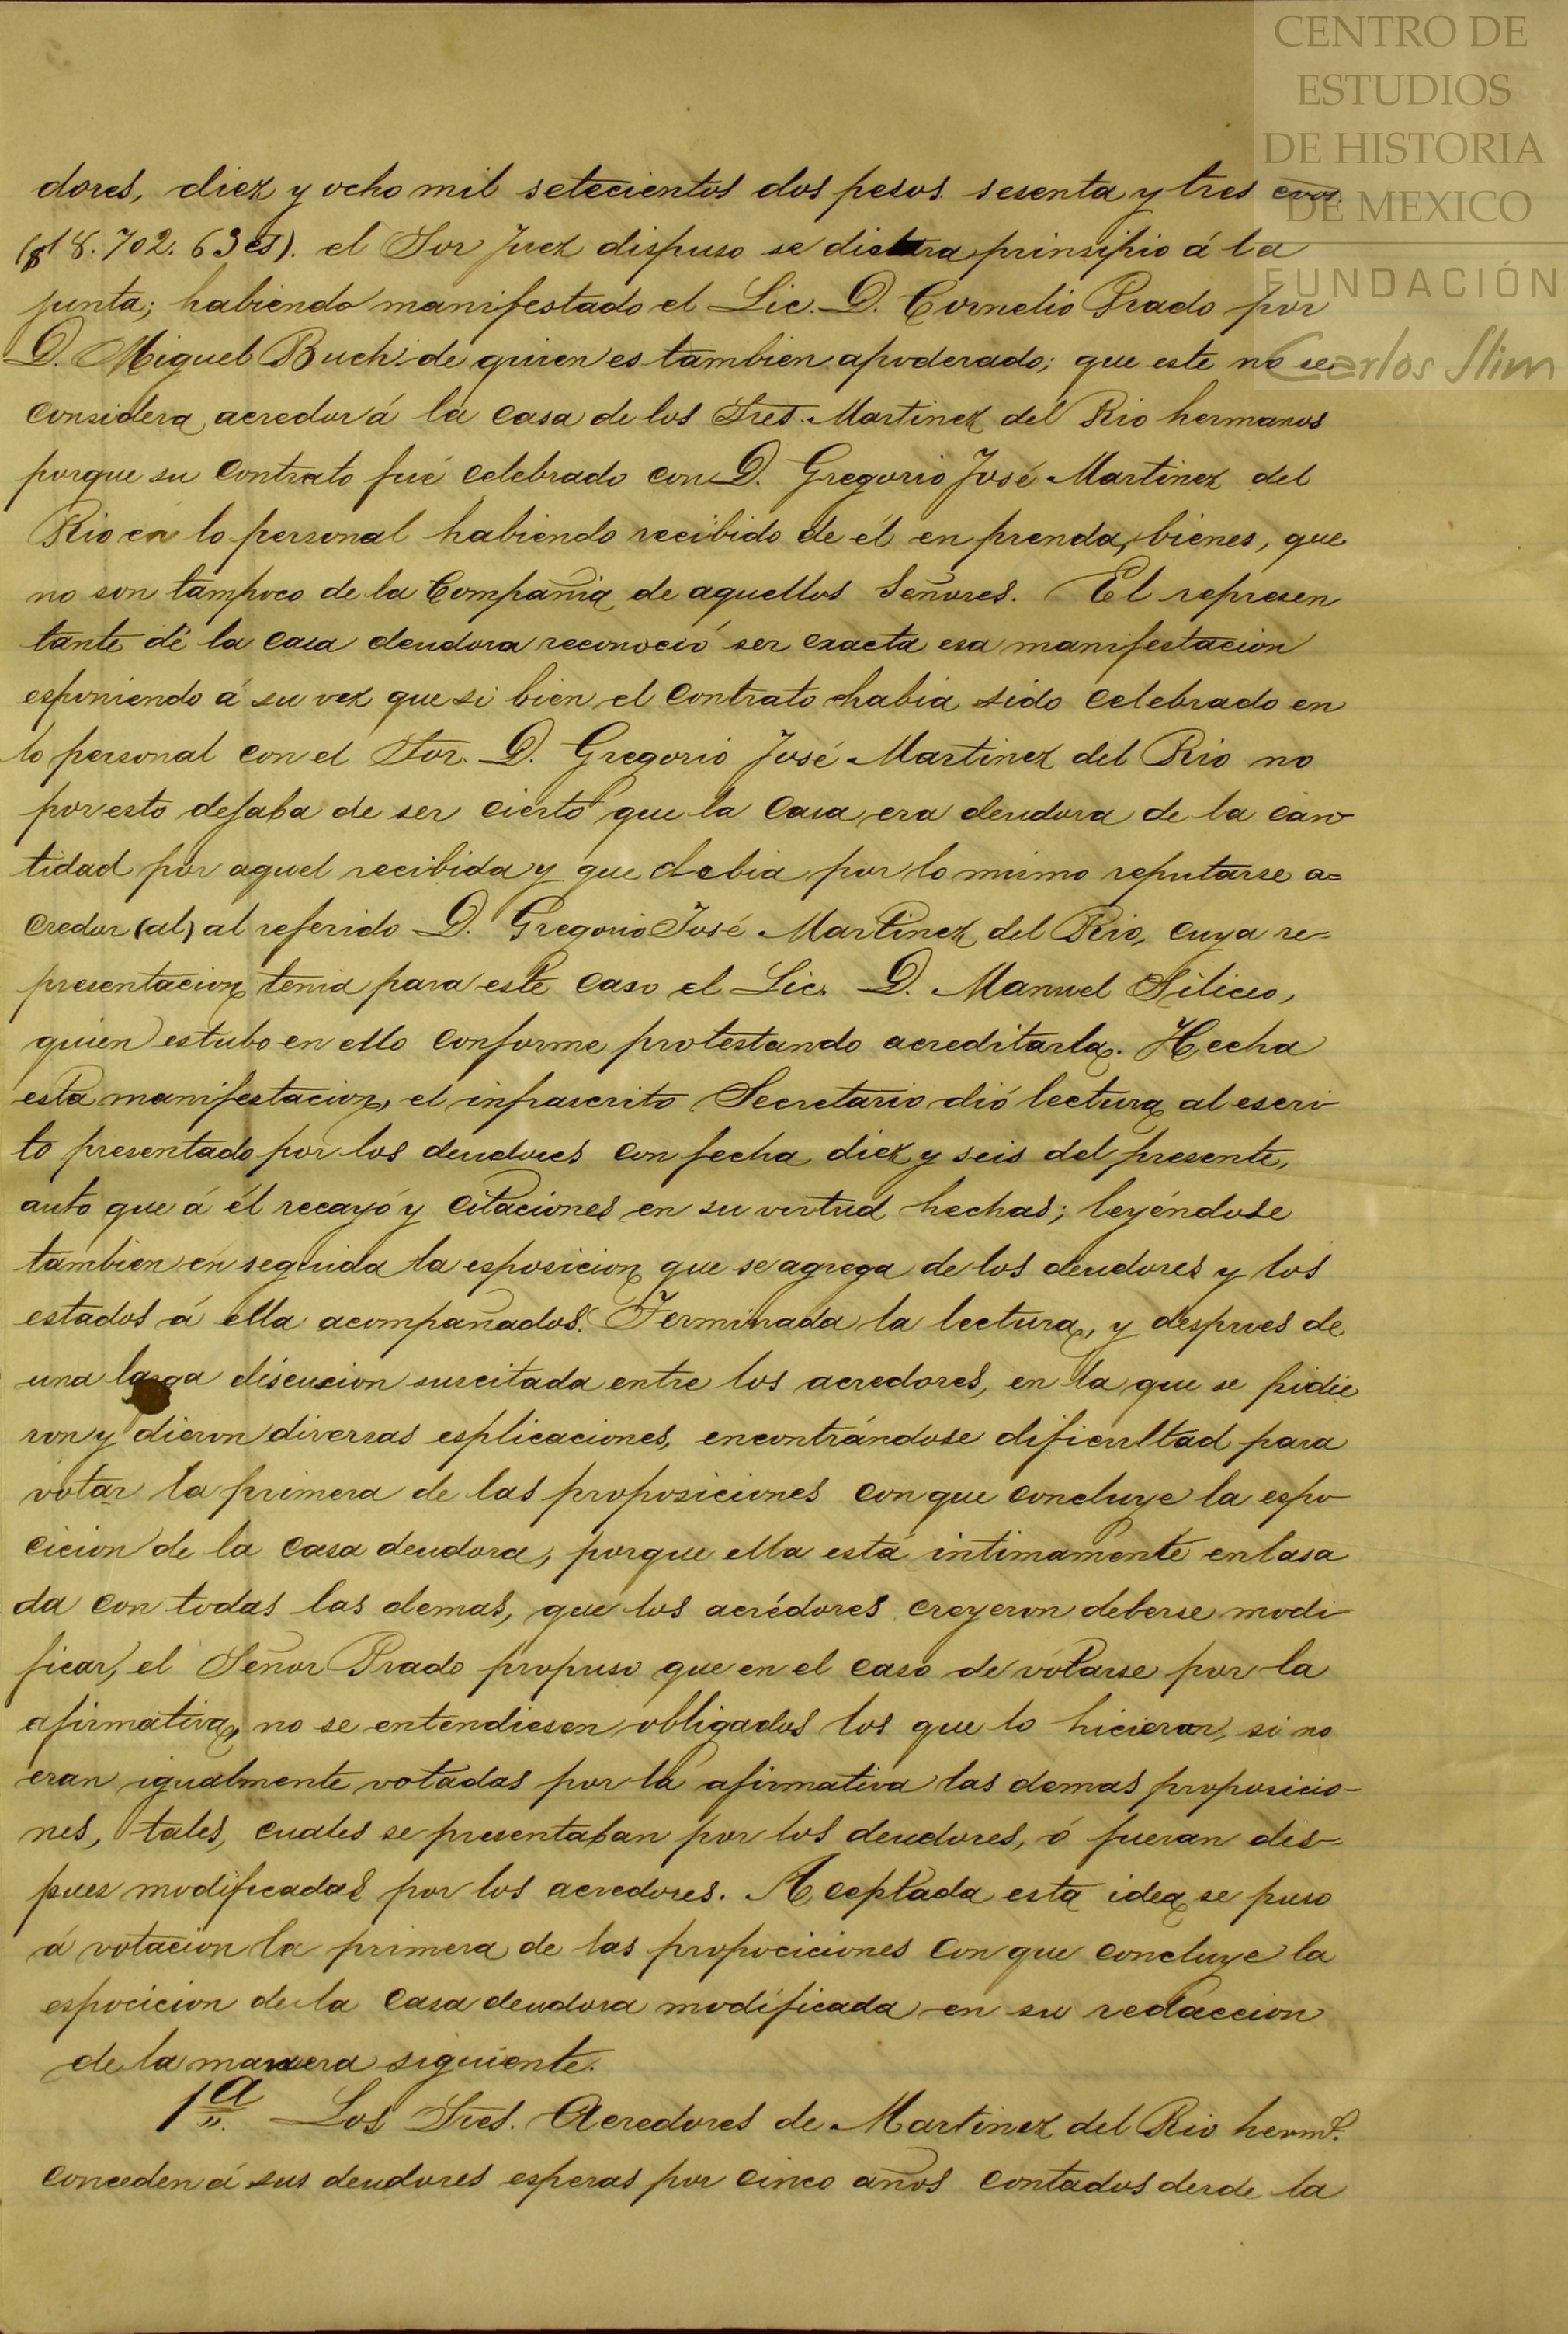 CENTRO DE
ESTUDIOS
DE HISTORIA
DE MEXICO
FUNDACIÓN
Carlos Slim
dores, diez y ocho mil setecientos dos pesos sesenta y tres cvos.
($18.702.63cs). el Sor Juez dispuso se dictara prinsipio á la
junta; habiendo manifestado el Lic. D. Cornelio Prado por
D. Miguel Buch: de quien es tambien apoderado; que este no se
considera acredor á la casa de los Sres. Martinez del Rio hermanos
porque su contrato fué celebrado con D. Gregorio José Martinez del
Rio en lo personal habiendo recibido de él en prenda, bienes, que
no son tampoco de la Compañia de aquellos Señores. El represen
tante de la casa deudora reconoció ser exacta esa manifestacion
esponiendo á su vez que si bien el contrato habia sido celebrado en
lo personal con el Sor. D. Gregorio José Martinez del Rio no
por esto dejaba de ser cierto que la casa era deudora de la can-
tidad por aquel recibida y que debia por lo mismo reputarse a=
credor (al) al referido D. Gregorio José Martinez del Rio, cuya re=
presentacion tenia para este caso el Lic. D. Manuel Siliceo,
quien estubo en ello conforme protestando acreditarla. Hecha
esta manifestacion, el infrascrito Secretario dió lectura al escri-
to presentado por los deudores con fecha diez y seis del presente,
auto que á él recayó y citaciones en su virtud hechas; leyéndose
tambien en seguida la esposicion que se agrega de los deudores y los
estados á ella acompañados. Terminada la lectura, y despues de
una larga discucion suscitada entre los acredores, en la que se pidie
ron y dieron diversas esplicaciones, encontrándose dificultad para
votar la primera de las proposiciones con que concluye la espo-
cicion de la casa deudora, porque ella está intimamente enlasa
da con todas las demas, que los acrédores creyeron deberse modi-
ficar, el Señor Prado propuso que en el caso de votarse por la
afirmativa, no se entendiesen obligados los que lo hicieran, si no
eran igualmente votadas por la afirmativa las demas proposicio-
nes, tales, cuales se presentaban por los deudores, ó fueran des=
pues modificadas por los acredores. Aceptada esta idea se puso
á votacion la primera de las propociciones con que concluye la
espocicion de la casa deudora modificada en su redaccion
de la manera siguiente.
1ª. Los Sres. Acredores de Martinez del Rio hermˢ.
conceden á sus deudores esperas por cinco años contados desde la